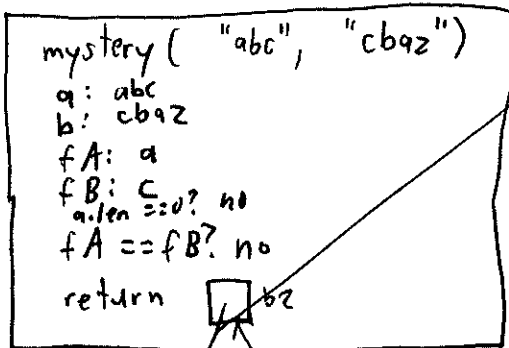 mystery( "abc", "cbaz")
a: abc
b: cbaz
fA: a
fB: c
a.len ==0? no
fA == fB? no
return bz